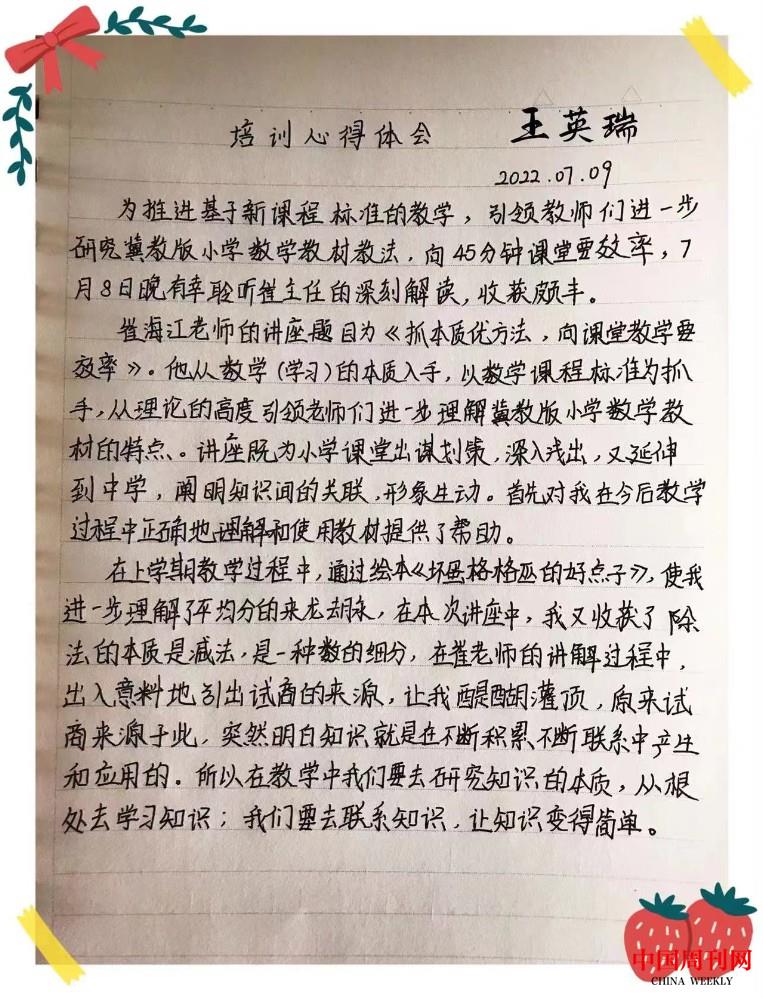 培训心得体会 王英瑞
2022.07.09
为推进基于新课程标准的教学，引领教师们进一步
研究冀教版小学数学教材教法，向45分钟课堂要效率，7
月8日晚有幸聆听崔主任的深刻解读，收获颇丰。
崔海江老师的讲座题目为《抓本质优方法，向课堂教学要
效率》。他从数学(学习)的本质入手，以数学课程标准为抓
手，从理论的高度引领老师们进一步理解冀教版小学数学教
材的特点。讲座既为小学课堂出谋划策，深入浅出，又延伸
到中学，阐明知识间的关联，形象生动。首先对我在今后教学
过程中正确地理解和使用教材提供了帮助。
在上学期教学过程中，通过绘本《坏蛋格格巫的好点子》，使我
进一步理解了平均分的来龙去脉，在本次讲座中，我又收获了除
法的本质是减法，是一种数的细分，在崔老师的讲解过程中，
出入意料地引出试商的来源，让我醍醐灌顶，原来试
商来源于此，突然明白知识就是在不断积累不断联系中产生
和应用的。所以在教学中我们要去研究知识的本质，从根
处去学习知识；我们要去联系知识，让知识变得简单。
中国周刊网
CHINA WEEKLY